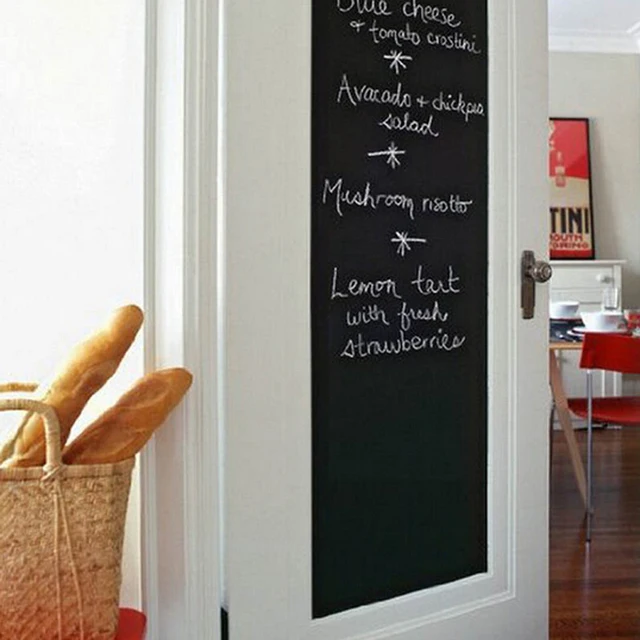 Blue cheese
+ tomato crostini
Avacado + chickpea
salad
Mushroom risotto
Lemon tart
with fresh
strawberries
TINI